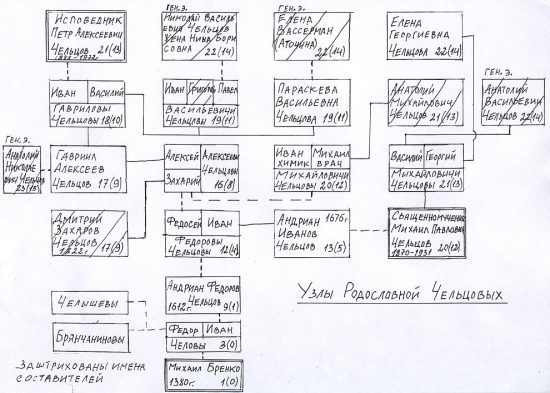 Исповедник
Петр Алексеевич
Чельцов 21(13)
1888-1972
Ген. э.
Николай Василь
евич Чельцов
жена Нина Бори
совна 22(14)
Ген. э.
Елена
Вассерман
(Аточина)
22(14)
Елена
Георгиевна
Чельцова 22(14)
Иван Василий
Гавриловы
Чельцовы 18(10)
Иван Григорий Павел
Васильевичи
Чельцовы 19(11)
Параскева
Васильевна
Чельцова 19(11)
Анатолий
Михайлович
Чельцов 21(13)
Ген. э.
Анатолий
Васильевич
Чельцов 22(14)
Ген. э.
Анатолий
Николае
вич Чельцов
23(15)
Гавриил
Алексеев
Чельцов 17(9)
Алексей Алексеевы
Чельцовы
Захарий 16(8)
Иван Михаил
химик врач
Михайловичи
Чельцовы 20(12)
Василий Георгий
Михайловичи
Чельцовы 21(13)
Дмитрий
Захаров
Чельцов
1822г. 17(9)
Федосей Иван
Федоровы
Чельцовы 12(4)
Андриан 1676г.
Иванов
Чельцов 13(5)
Священномученик
Михаил Павлович
Чельцов 20(12)
1870-1931
Андриан Федоров
Чельцов
1612г. 9(1)
Узлы Родословной Чельцовых
Челышевы
Брянчаниновы
Федор Иван
Человы 3(0)
Михаил Бренко
1380г. 1(0)
Заштрихованы имена
составителей